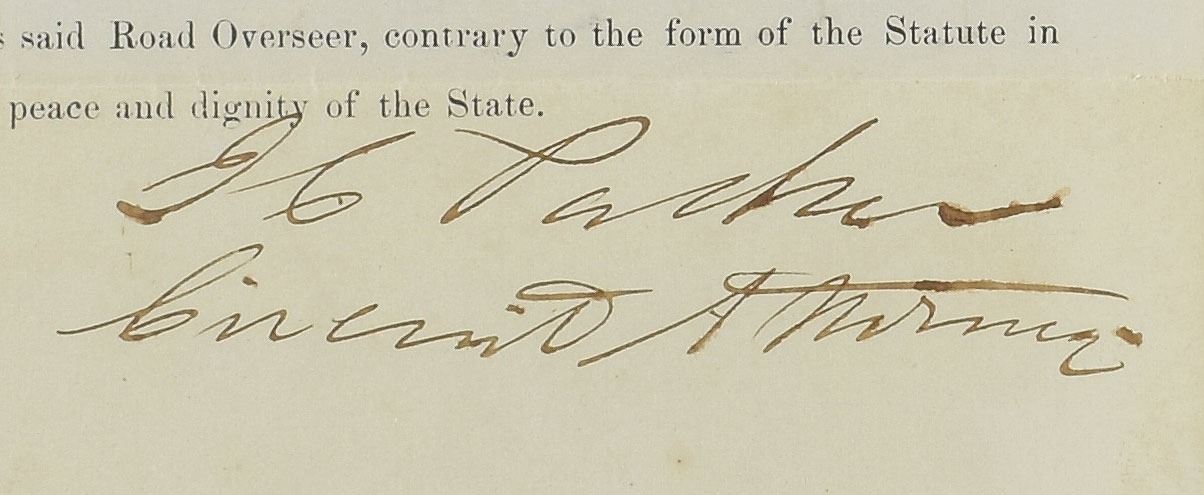 said Road Overseer, contrary to the form of the Statute in
peace and dignity of the State.
I C Parker
Circuit Attorney